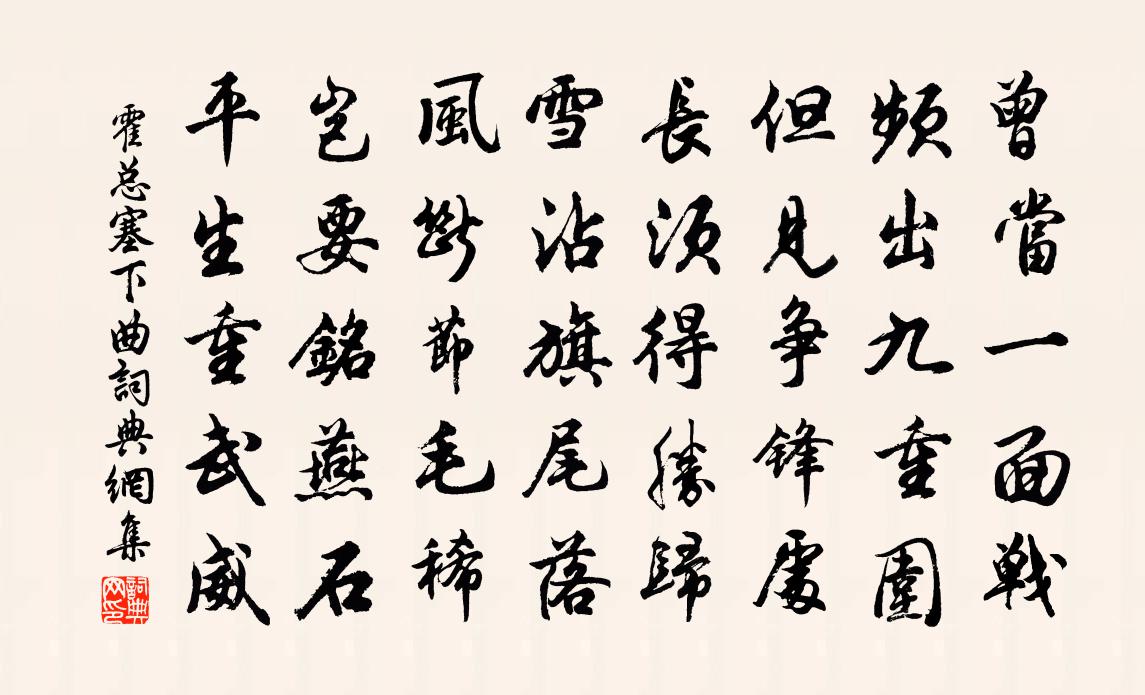 曾當一面戰
頻出九重圍
但見争鋒處
長須得勝歸
雪沾旗尾落
風斷節毛稀
豈要銘燕石
平生重武威
霍总塞下曲詞典網集
詞典网印